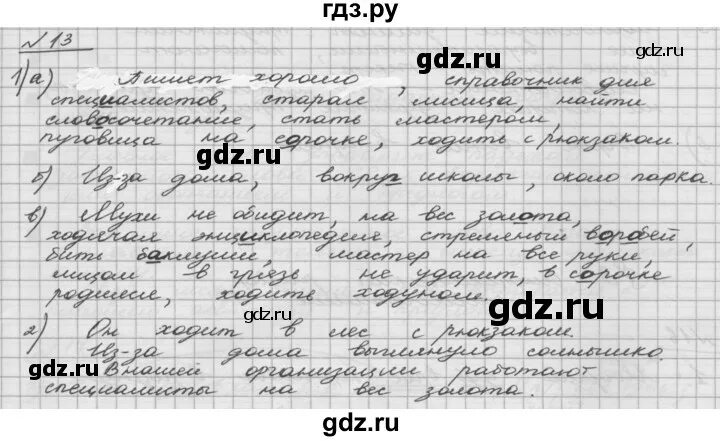 гдз.ру
№ 13
1) а) Пишет хорошо, справочник для
специалистов, старая лисица, найти
словосочетание, стать мастером,
пуговица на сорочке, ходить с рюкзаком.
б) Из-за дома, вокруг школы, около парка.
в) Мухи не обидит, на вес золота,
ходячая энциклопедия, стреляный воробей,
бить баклуши, мастер на все руки,
лицом в грязь не ударит, в сорочке
родился, ходить ходуном.
г) Он ходит в лес с рюкзаком.
Из-за дома выглянуло солнышко.
В нашей организации работают
специалисты на вес золота.
gdz.ru
gdz.ru
gdz.ru
gdz.ru
gdz.ru
gdz.ru
gdz.ru
gdz.ru